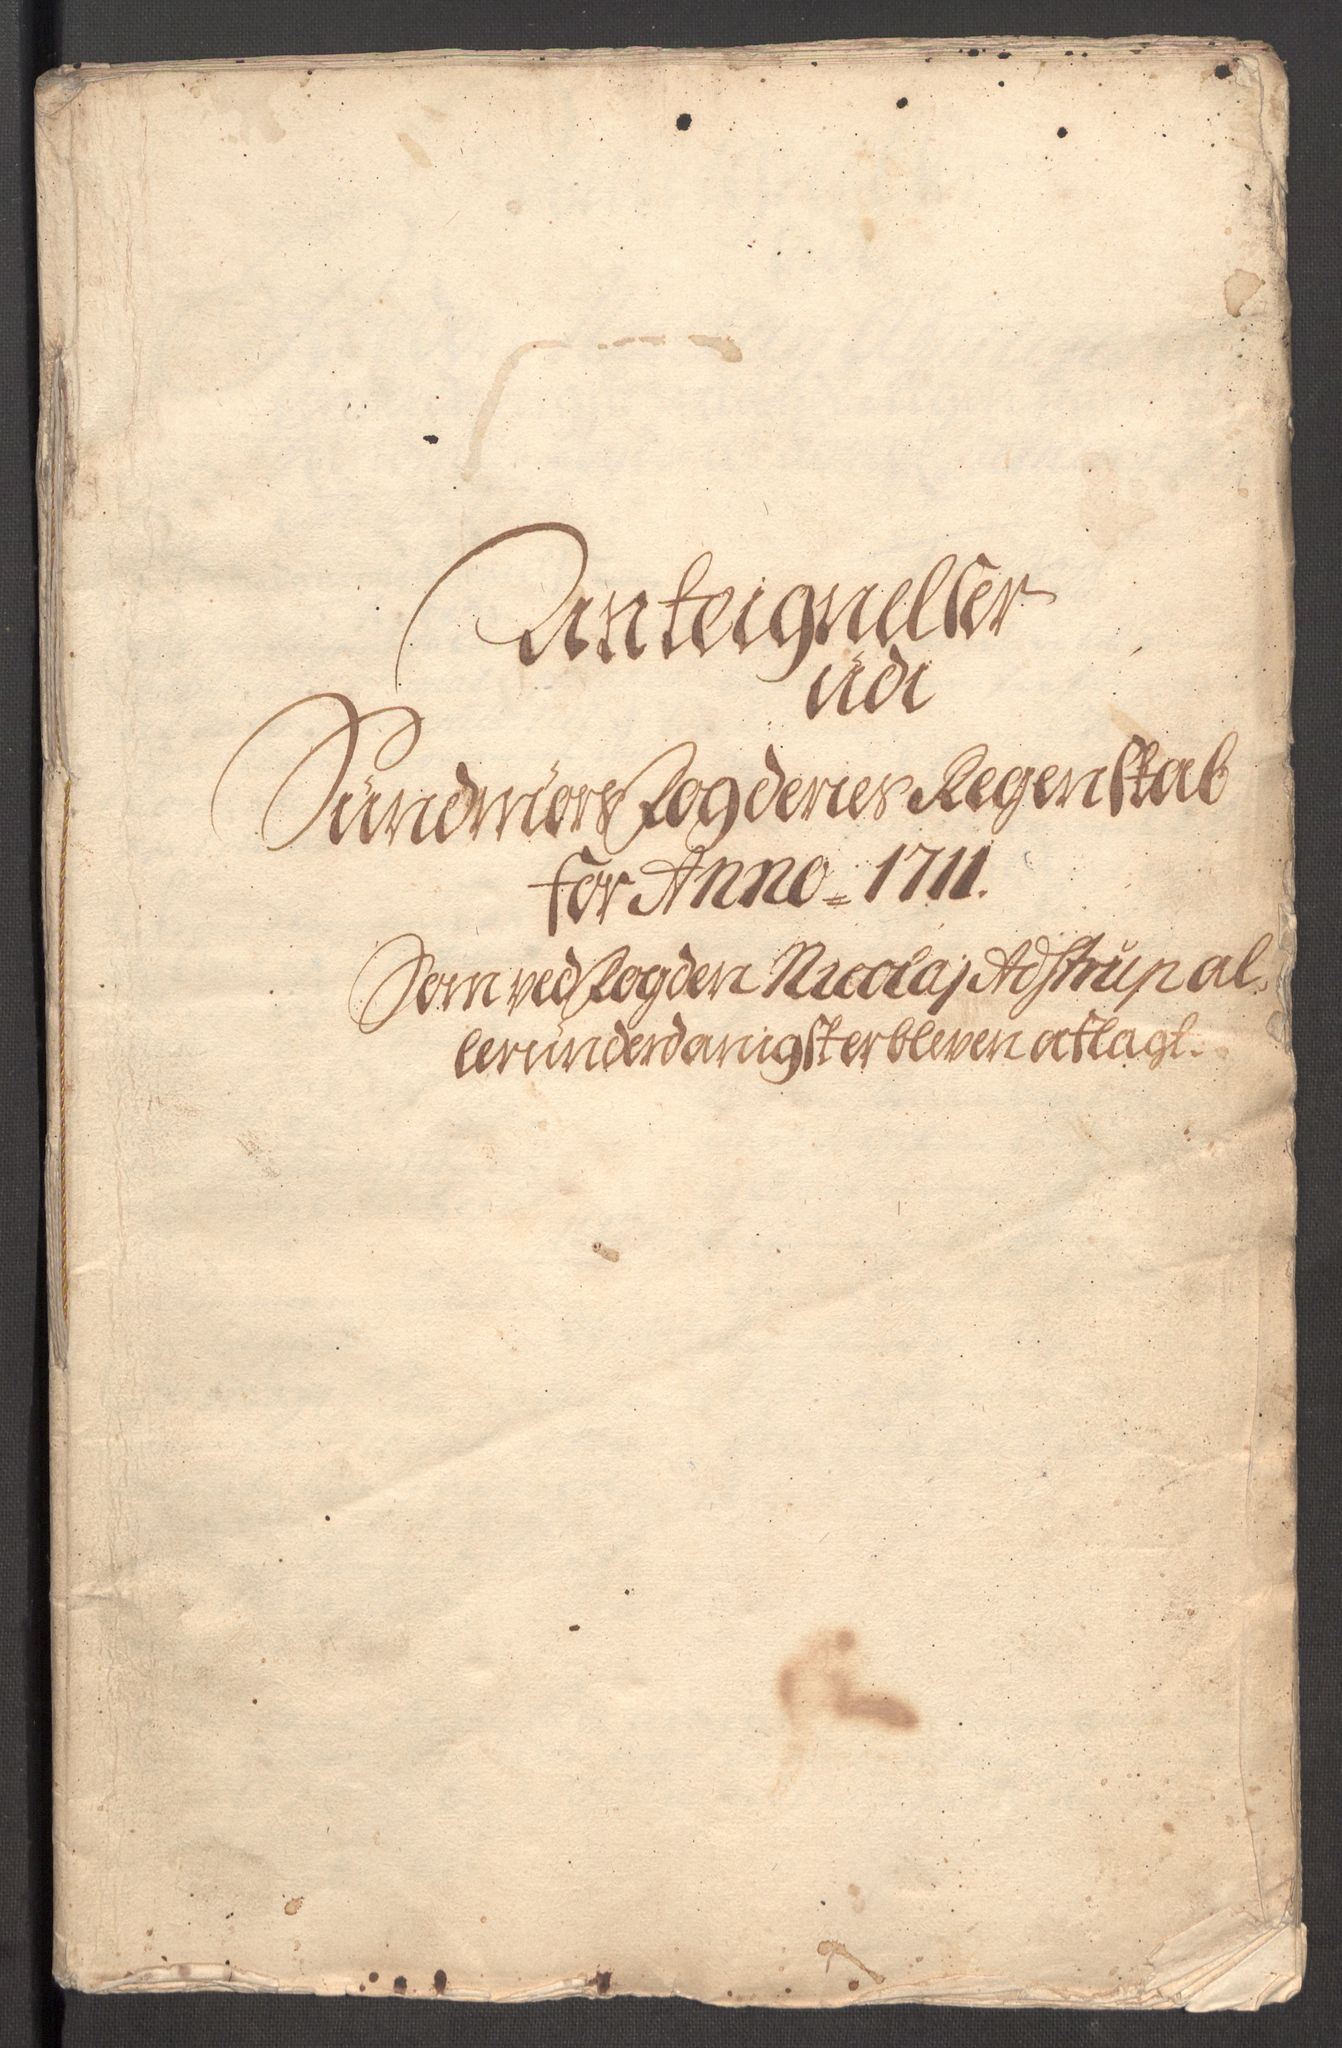 Anteignelser
udi
Sundmörs Fogderies Regenskab
for Anno = 1711.
Som ved Fogden Nicolaj Astrup al-
lerunderdanigst er bleven aflagt.